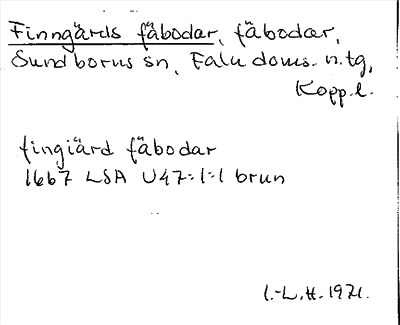 Finngärds fäbodar, fäbodar,
Sundborns sn, Falu doms. n. tg,
Kopp. l.
fingiärd fäbodar
1667 LSA U47:1:1 brun
I.-L. H. 1971.